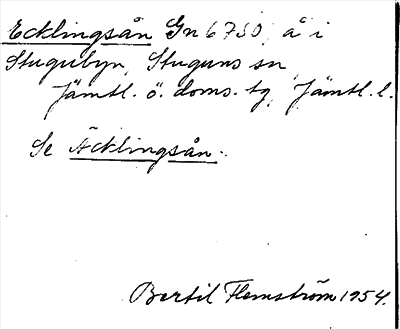 Ecklingsån Gn 6750, å i
Stugubyn, Stuguns sn
Jämtl. ö. doms. tg, Jämtl. l.
Se Äcklingsån.
Bertil Flemström 1954.